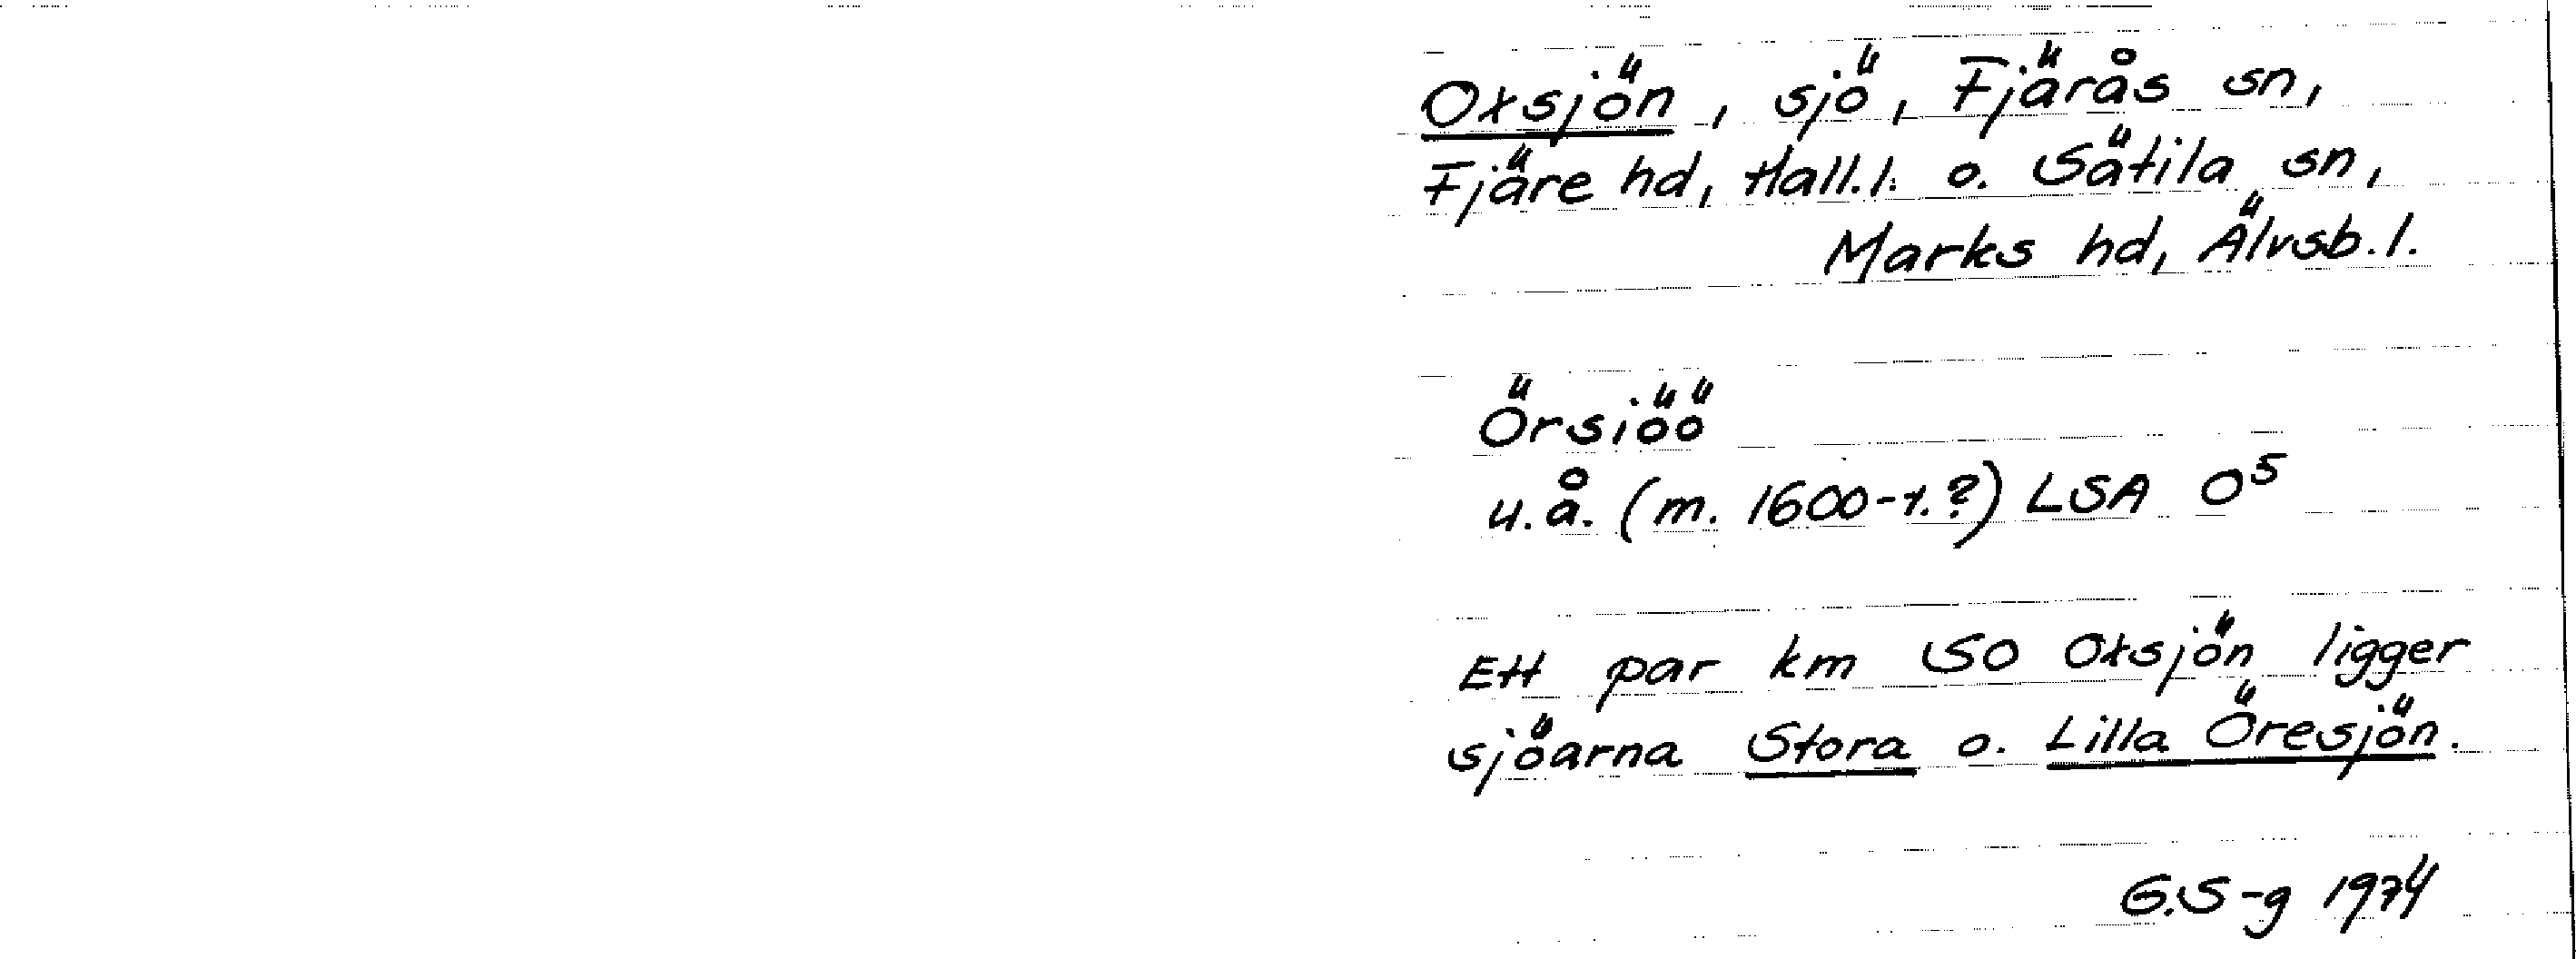 Oxsjön, sjö, Fjärås sn,
Fjäre hd, Hall.l. o. Sätila sn,
Marks hd, Älvsb.l.
Örsiöö
u.å. (m. 1600-t.?) LSA O⁵
Ett par km SO Oxsjön ligger
sjöarna Stora o. Lilla Öresjön.
G.S-g 1974